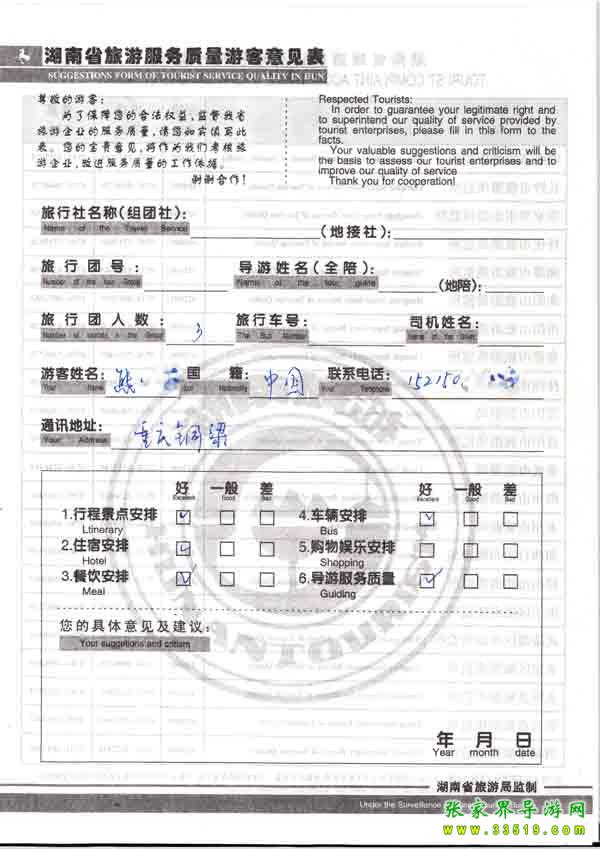 湖南省旅游服务质量游客意见表
SUGGESTIONS FORM OF TOURIST SERVICE QUALITY IN HUN
尊敬的游客:
为了保障您的合法权益,监督我省
旅游企业的服务质量,请您如实填写此
表。您的宝贵意见,将作为我们考核旅
游企业,改进服务质量的工作依据。
谢谢合作!
Respected Tourists:
In order to guarantee your legitimate right and
to superintend our quality of service provided by
tourist enterprises, please fill in this form to the
facts.
Your valuable suggestions and criticism will be
the basis to assess our tourist enterprises and to
improve our quality of service
Thank you for cooperation!
旅行社名称(组团社): (地接社):
Name of the Travel Service
旅行团号: 导游姓名(全陪): (地陪):
Number of the tour Group Name of the tour guide
旅行团人数: 3 旅行车号: 司机姓名:
The Bus Number
游客姓名: 熊 国籍: 中国 联系电话: 152150
Your Name Nationality Your Telephone
通讯地址: 重庆铜梁
Your Address
好 一般 差 好 一般 差
Excellent Good Bad Excellent Good Bad
1.行程景点安排 4.车辆安排
Ltinerary Bus
2.住宿安排 5.购物娱乐安排
Hotel Shopping
3.餐饮安排 6.导游服务质量
Meal Guiding
您的具体意见及建议:
Your suggetions and critism
年 月 日
Year month date
湖南省旅游局监制
Under the Surveillance
张家界导游网
www.33519.com